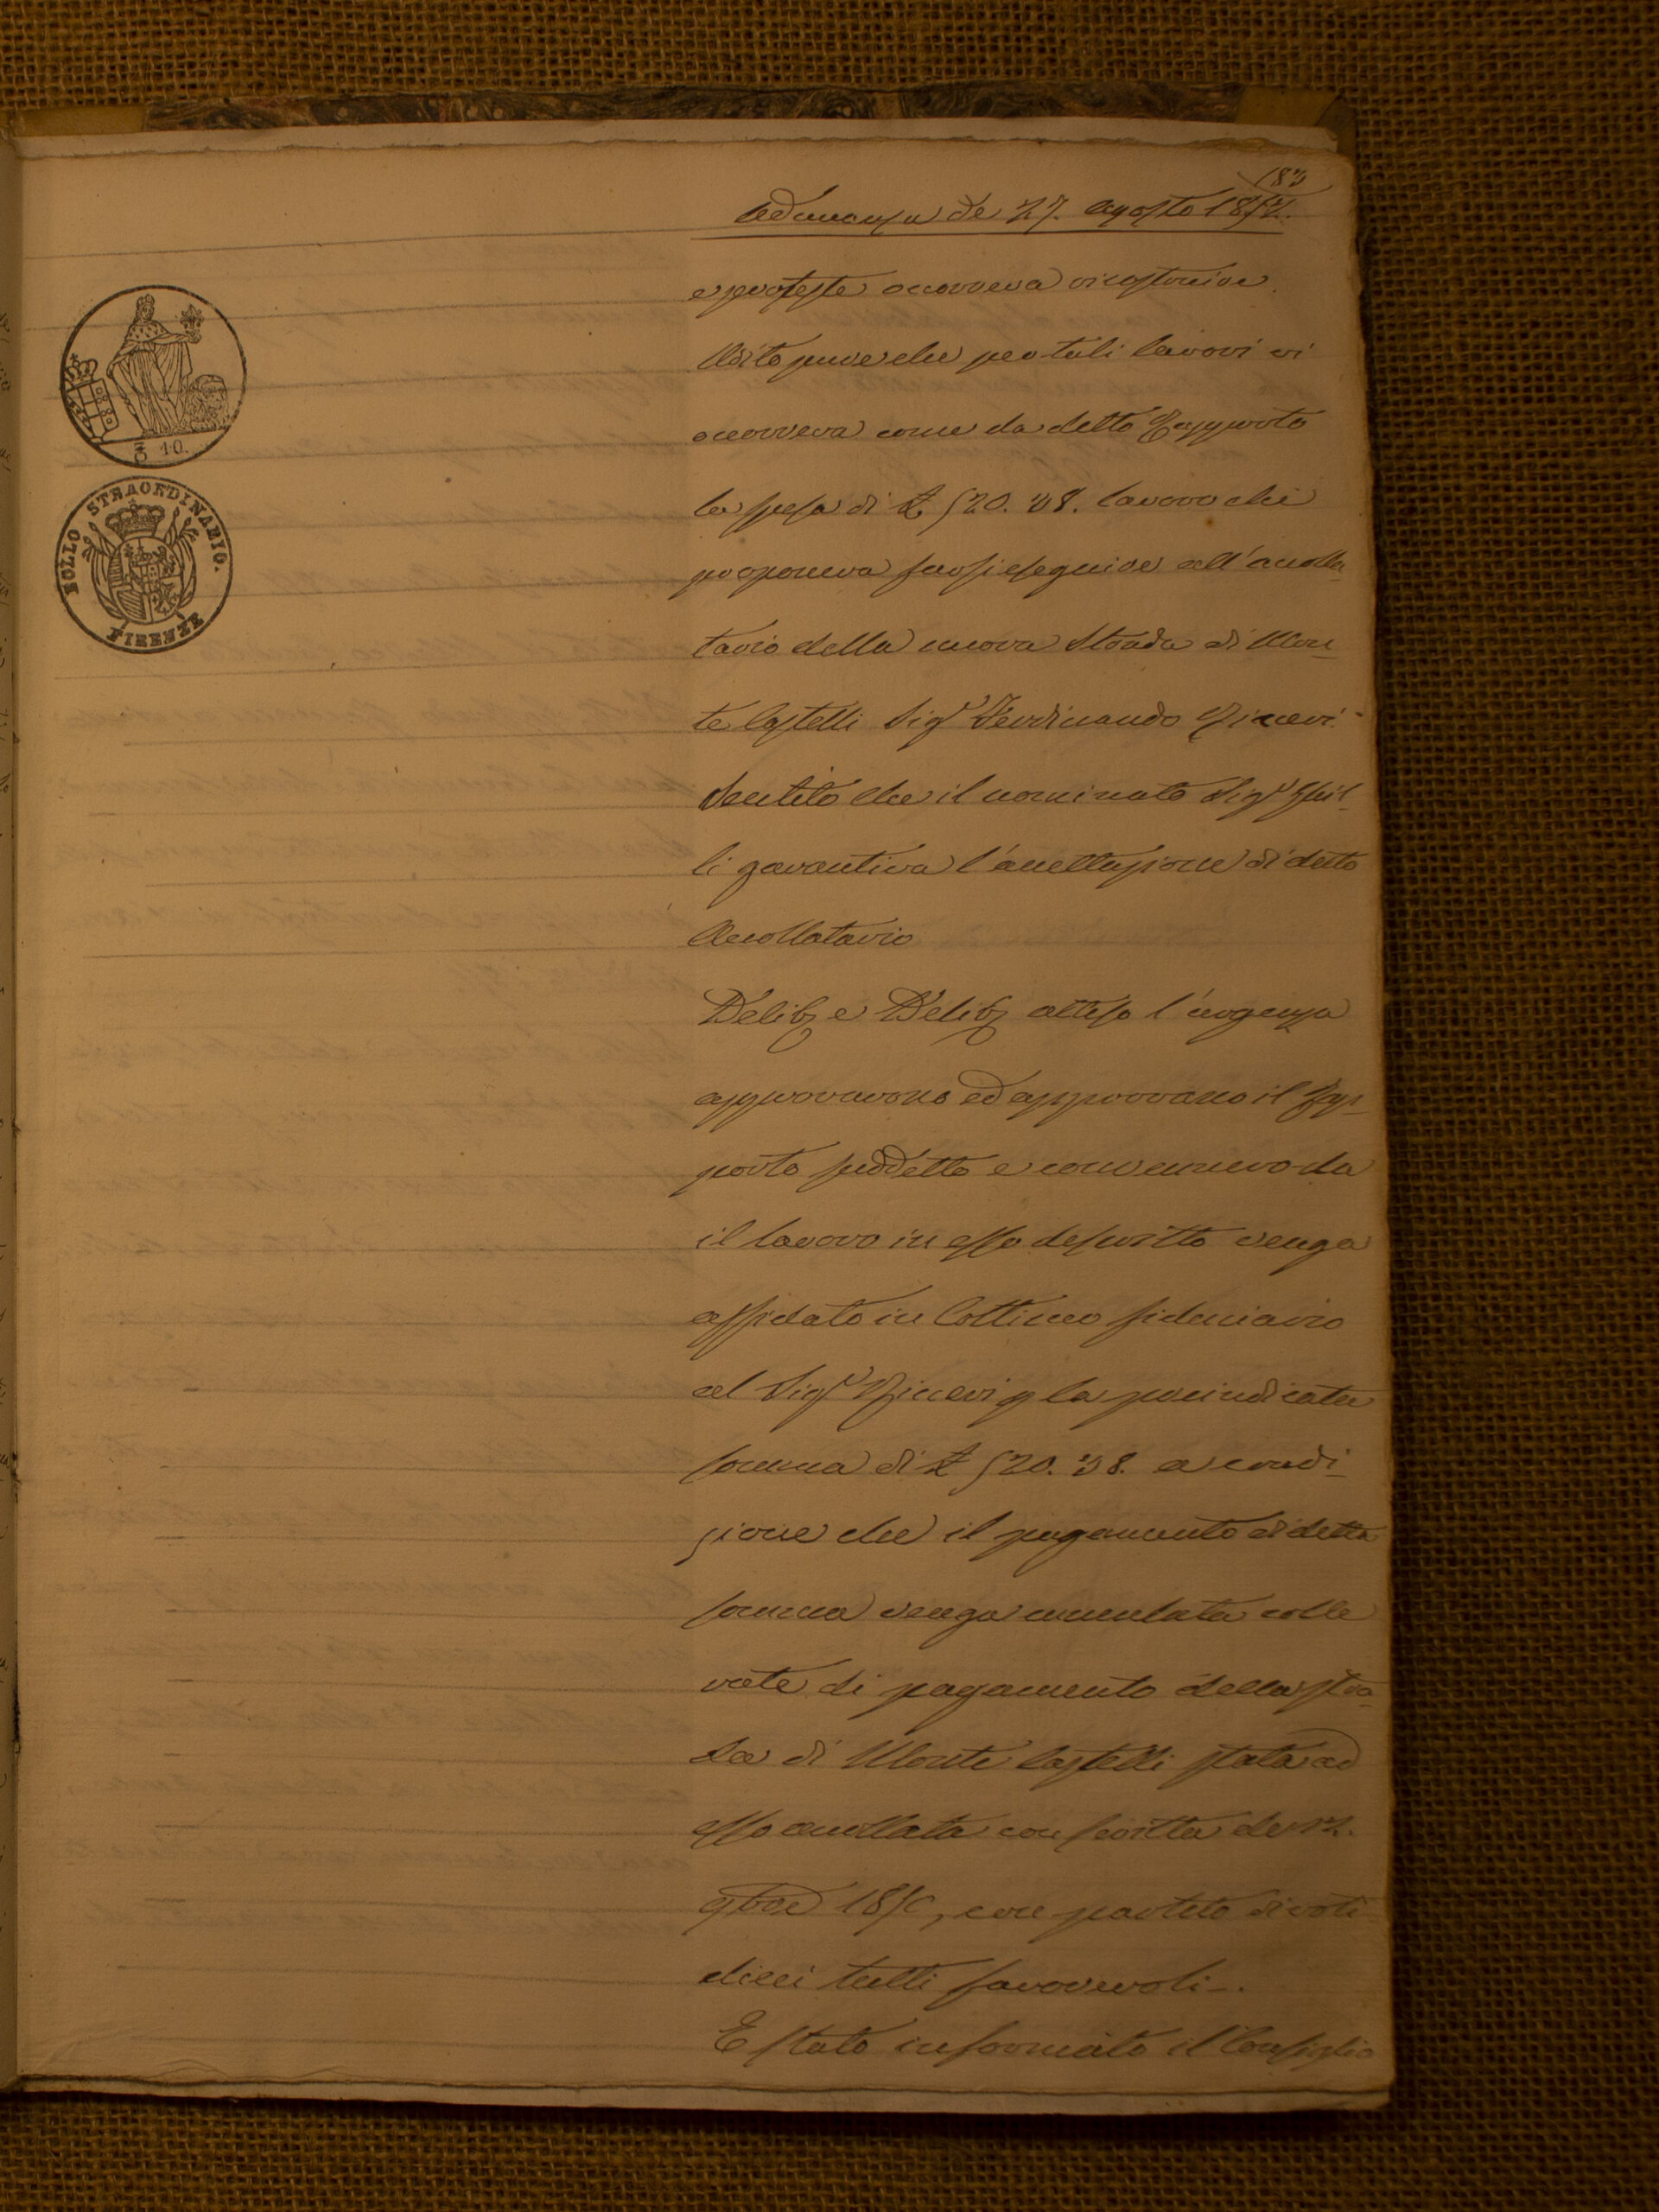 183
Adunanza de 27. Agosto 1852.
e proteste occorreva ricostruire.
Udito pure che per tali lavori vi
occorreva come da detto Rapporto
la spesa di £ 520. 38. lavoro che
proponeva farsi eseguire all'accolla
tario della nuova Strada di Mon-
te Castelli Sigr Ferdinando
Sentito che il nominato Sigr
li garantiva l'accettazione di detto
Accollatario
Delib e Delib atteso l'urgenza
approvarono ed approvano il Rap-
porto suddetto e convennero da
il lavoro in esso descritto venga
affidato in Cottimo fiduciario
al Sigr p la preindicata
somma di £ 520. 38. a condi-
zione che il pagamento di detta
somma venga cumulata colle
rate di pagamento della stra-
da di Monte Castelli stata ad
esso accollata con scritta de 12.
9bre con partito di voti
dieci tutti favorevoli-.
E stato informato il Consiglio
3 10.
BOLLO STRAORDINARIO.
FIRENZE